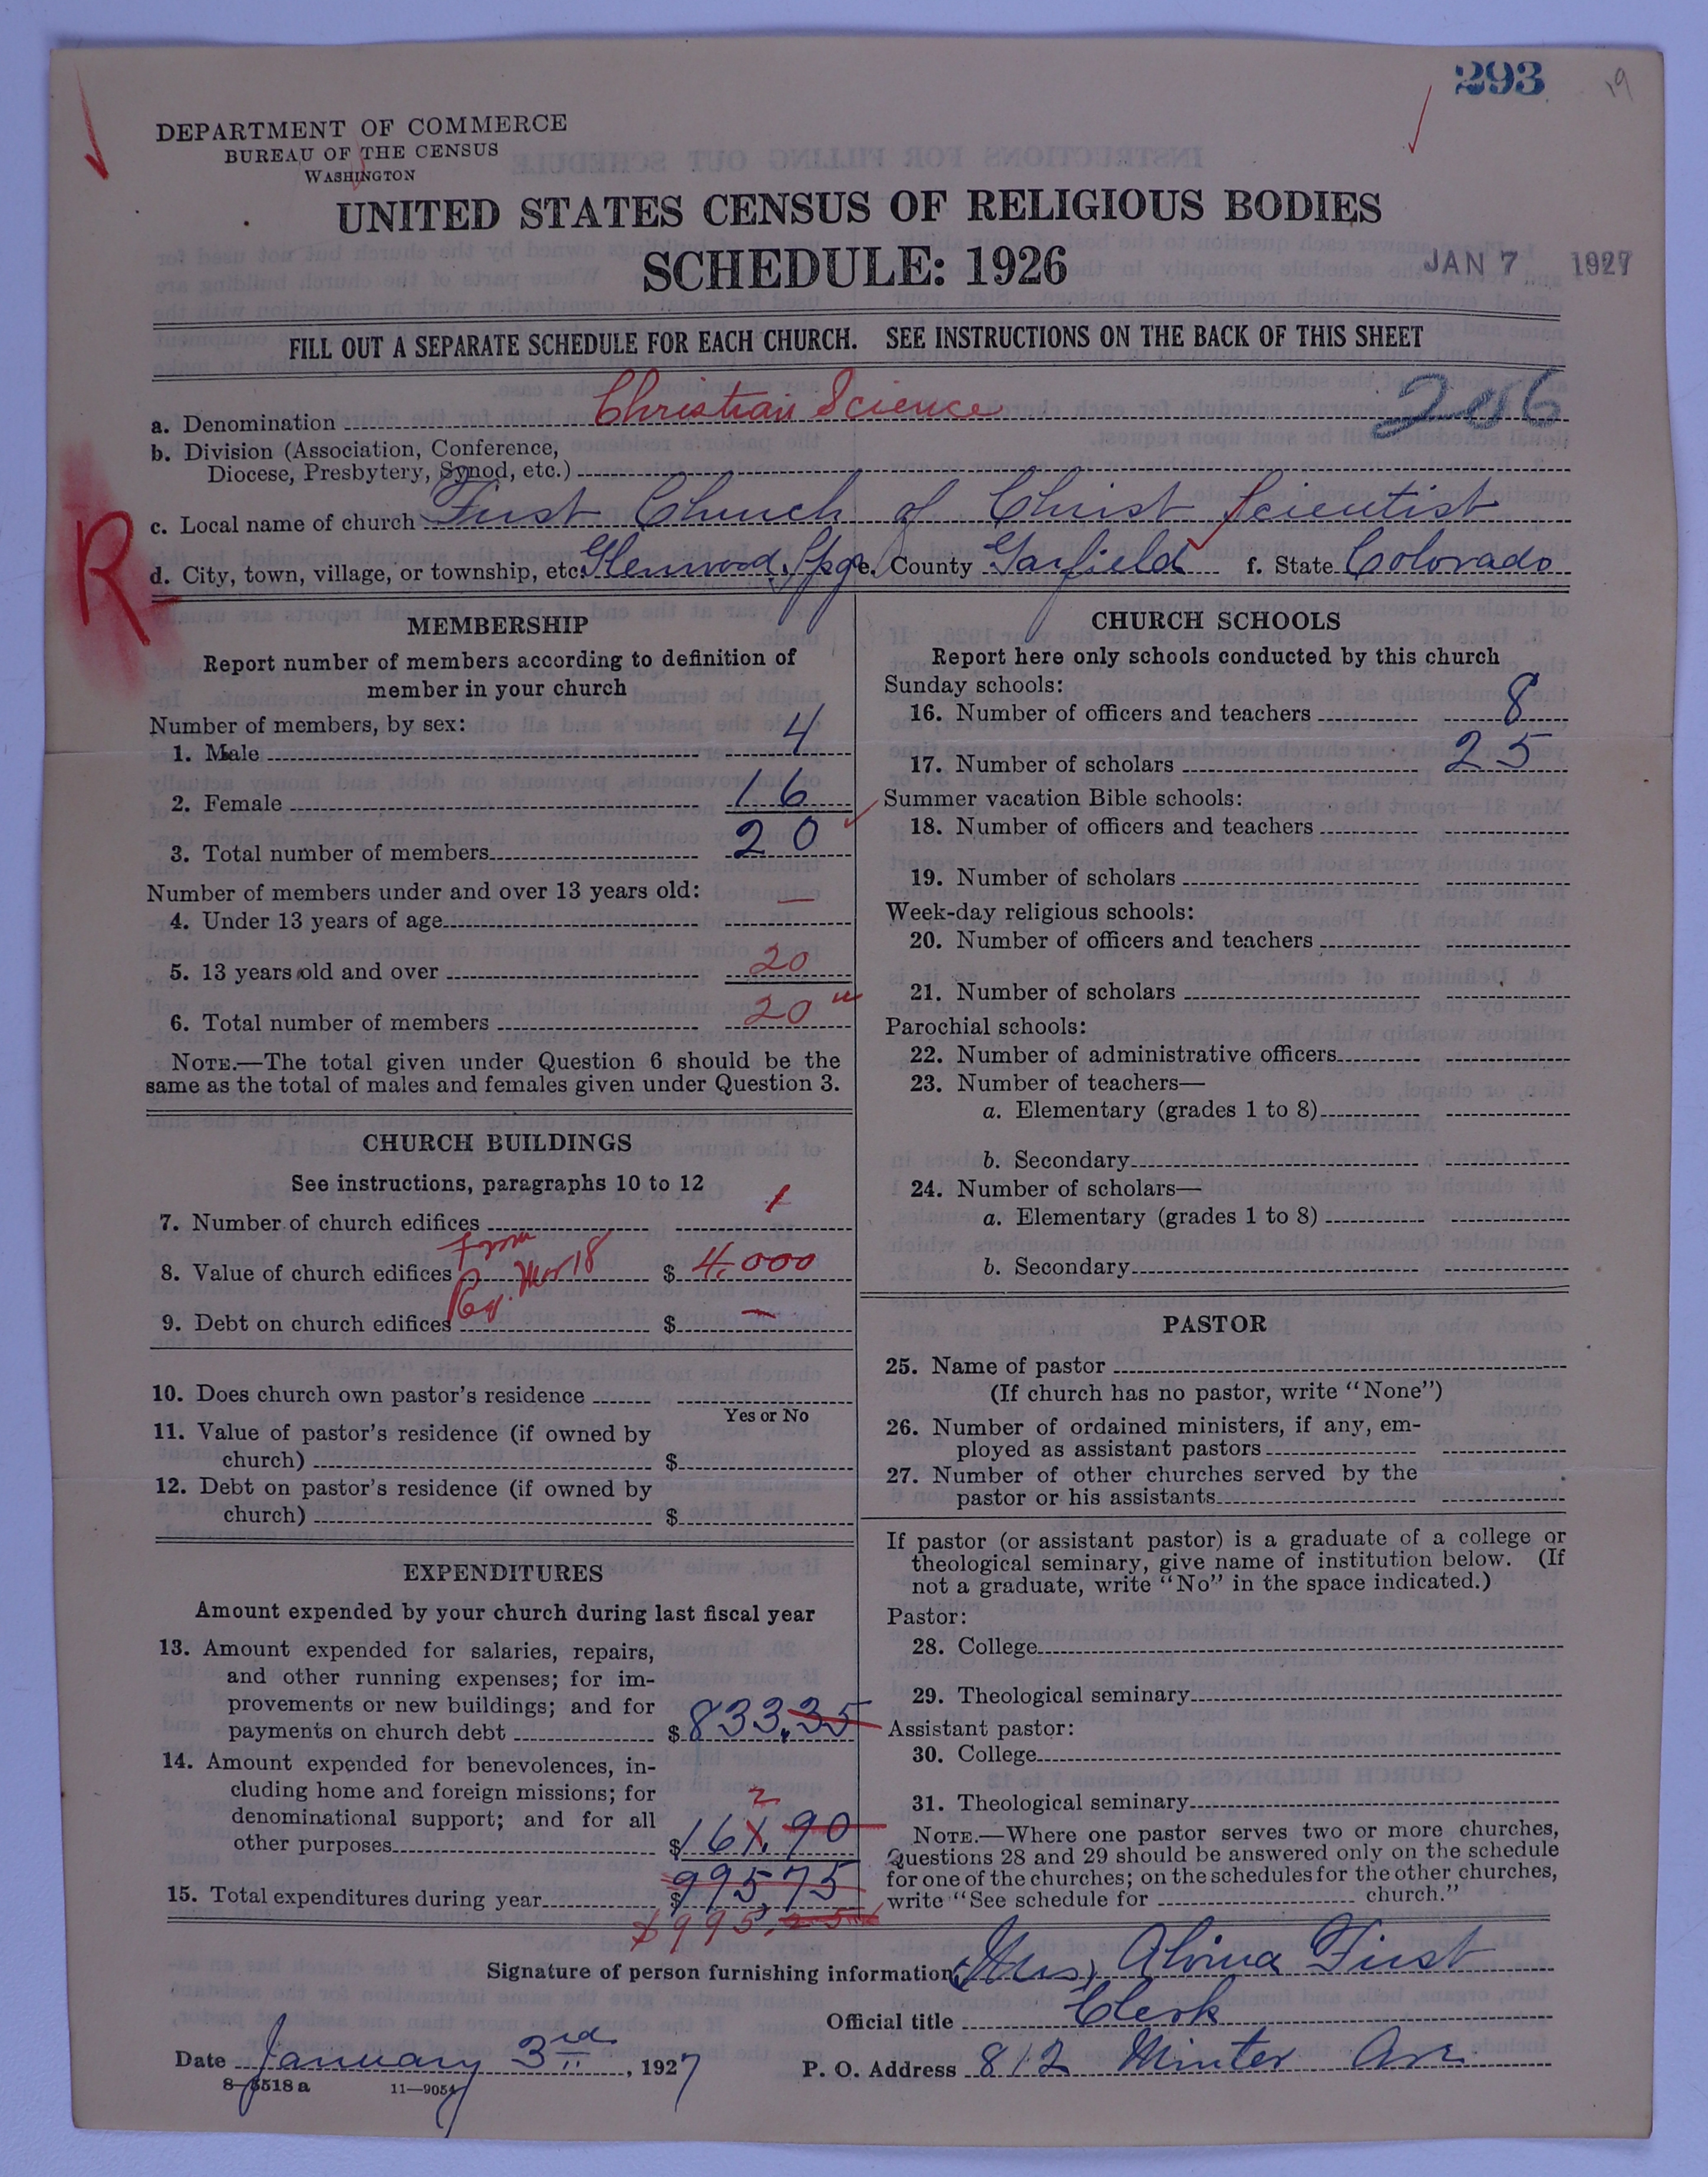 293
19
DEPARTMENT OF COMMERCE
BUREAU OF THE CENSUS
WASHINGTON
UNITED STATES CENSUS OF RELIGIOUS BODIES
SCHEDULE: 1926
JAN 7 1927
FILL OUT A SEPARATE SCHEDULE FOR EACH CHURCH. SEE INSTRUCTIONS ON THE BACK OF THIS SHEET
206
a. Denomination Christian Science
b. Division (Association, Conference,
Diocese, Presbytery, Synod, etc.)
c. Local name of church First Church of Christ Scientist
R
d. City, town, village, or township, etc. Glenwood Spgs e. County Garfield f. State Colorado
MEMBERSHIP
Report number of members according to definition of
member in your church
Number of members, by sex:
1. Male 4
2. Female 16
3. Total number of members 20
Number of members under and over 13 years old:
4. Under 13 years of age —
5. 13 years old and over 20
6. Total number of members 20
NOTE.—The total given under Question 6 should be the
same as the total of males and females given under Question 3.
CHURCH BUILDINGS
See instructions, paragraphs 10 to 12
7. Number of church edifices 1
From
8. Value of church edifices Mar 18 $ 4,000
9. Debt on church edifices $ —
10. Does church own pastor's residence
Yes or No
11. Value of pastor's residence (if owned by
church) $
12. Debt on pastor's residence (if owned by
church) $
EXPENDITURES
Amount expended by your church during last fiscal year
13. Amount expended for salaries, repairs,
and other running expenses; for im-
provements or new buildings; and for
payments on church debt $ 833.35
14. Amount expended for benevolences, in-
cluding home and foreign missions; for
2
denominational support; and for all
other purposes $ 161.90
15. Total expenditures during year $ 995.75
$995.25
CHURCH SCHOOLS
Report here only schools conducted by this church
Sunday schools:
16. Number of officers and teachers 8
17. Number of scholars 25
Summer vacation Bible schools:
18. Number of officers and teachers
19. Number of scholars
Week-day religious schools:
20. Number of officers and teachers
21. Number of scholars
Parochial schools:
22. Number of administrative officers
23. Number of teachers—
a. Elementary (grades 1 to 8)
b. Secondary
24. Number of scholars—
a. Elementary (grades 1 to 8)
b. Secondary
PASTOR
25. Name of pastor
(If church has no pastor, write "None")
26. Number of ordained ministers, if any, em-
ployed as assistant pastors
27. Number of other churches served by the
pastor or his assistants
If pastor (or assistant pastor) is a graduate of a college or
theological seminary, give name of institution below. (If
not a graduate, write "No" in the space indicated.)
Pastor:
28. College
29. Theological seminary
Assistant pastor:
30. College
31. Theological seminary
NOTE.—Where one pastor serves two or more churches,
Questions 28 and 29 should be answered only on the schedule
for one of the churches; on the schedules for the other churches,
write "See schedule for church."
Signature of person furnishing information (Mrs) Alvina First
Official title Clerk
Date January 3rd, 1927 P. O. Address 812 Minter Ave
8-5518a 11-9054